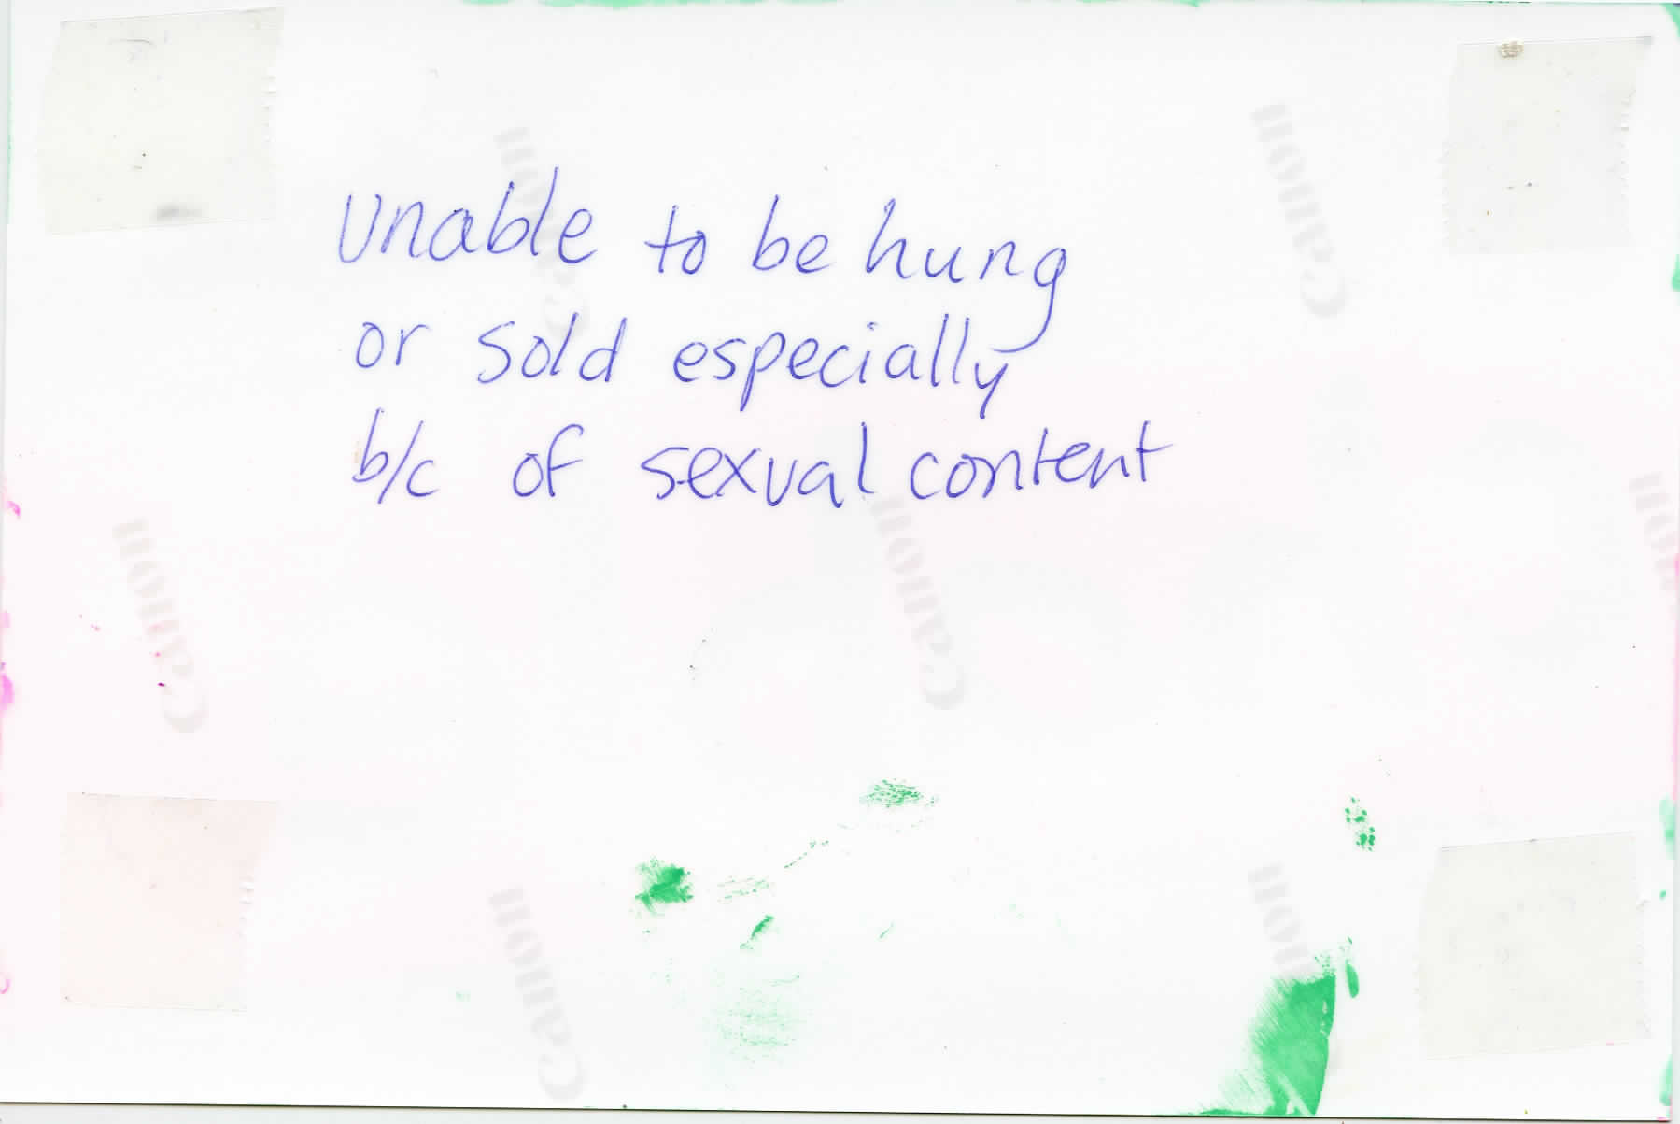 Unable to be hung
or sold especially
b/c of sexual content
Canon
Canon
Canon
Canon
Canon
Canon